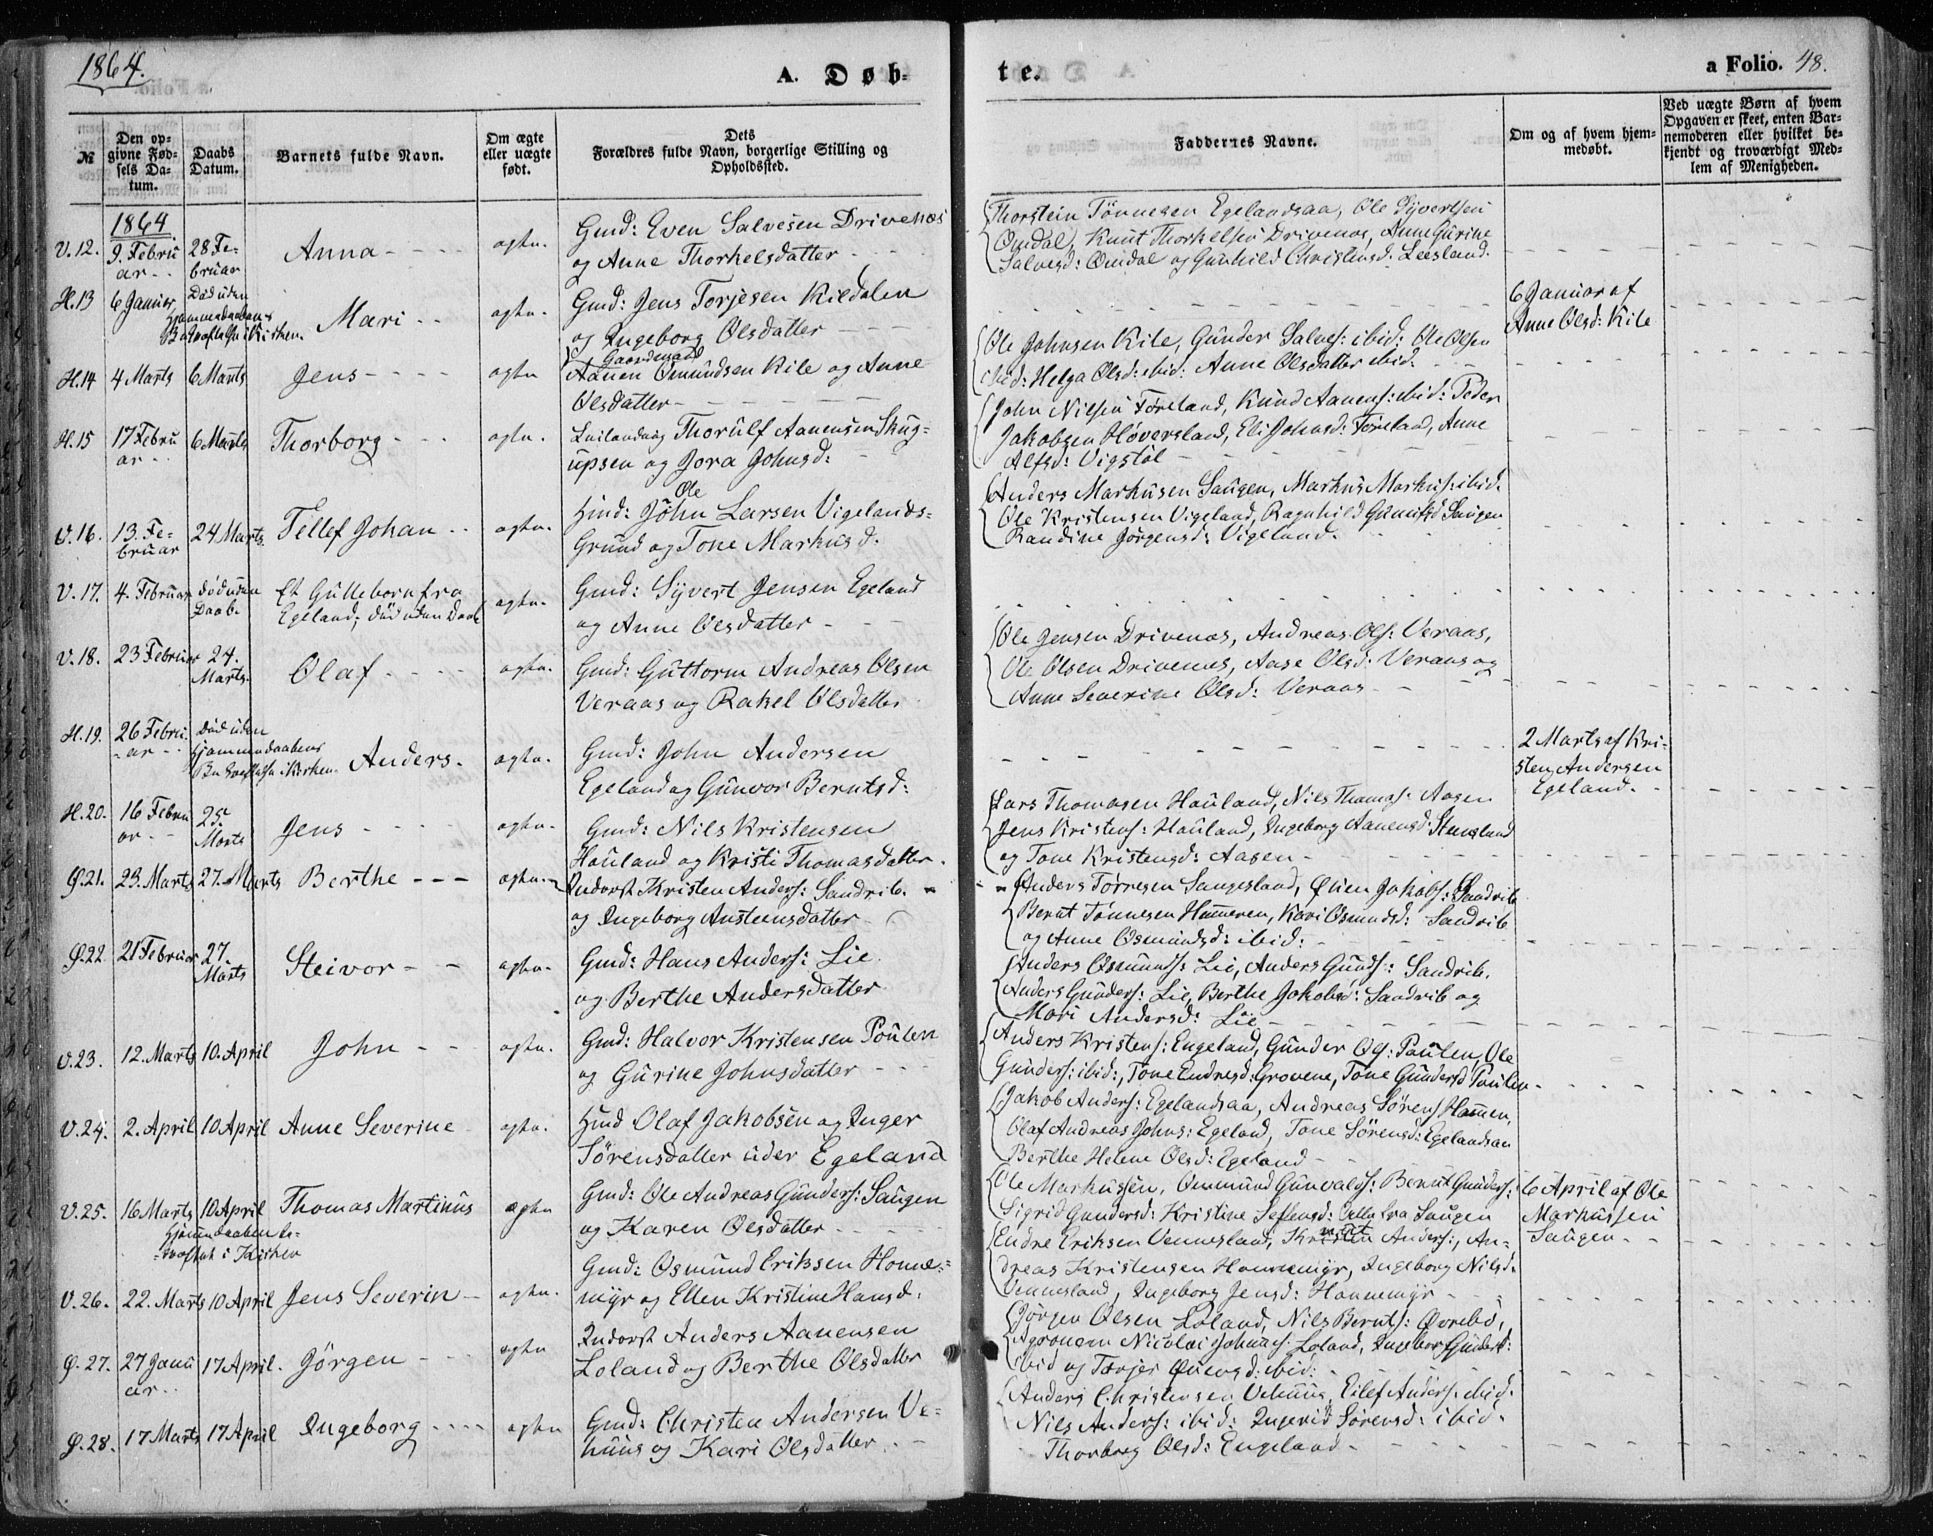 1864.
A. Døb-
te.
a Folio. 48.
№
Den op-
givne Fød-
sels Da-
tum.
Daabs
Datum.
Barnets fulde Navn.
Om ægte
eller uægte
født.
Dets
Forældres fulde Navn, borgerlige Stilling og
Opholdssted.
Faddernes Navne.
Om og af hvem hjem-
medøbt.
Ved uægte Børn af hvem
Opgaven er skeet, enten Bar-
nemoderen eller hvilket be-
kjendt og troværdigt Med-
lem af Menigheden.
1864
V.12.
9. Febru
ar
28 Fe-
bruar
Anna
egte.
Gmd: Even Salvesen Drivenes
og Anne Thorkelsdatter
Thorstein Tönnesen Egelandsaa, Ole Syvertsen
Omdal, Knut Thorkelsen Drivenes, Anne Gurine
Salvesd: Omdal og Gunhild Christensd: Leesland.
H.13
6 Januar
Död uden
Hjemmedaabens
Bekræftelse i Kirken.
Mari
egte.
Gmd: Jens Torjesen Kildalen
og Ingeborg Olsdatter
6 Januar af
Anne Olsd: Kile
H.14
4 Marts
6 Marts
Jens
egte
Gaardmand
Aanen Omundsen Kile og Anne
Olsdatter
Ole Johnsen Kile, Gunder Salves: ibid: Ole Olsen
ibid: Helga Olsd: ibid: Anne Olsdatter ibid.
H.15
17 Febru
ar
6 Marts
Thorborg
egte.
Leilændug Thorulf Aanensen Skug-
upsen og Jora Johnsd:
John Nilsen Föreland, Knud Aanens: ibid: Peder
Jakobsen Höversland, Eli Johnsd: Föreland, Anne
Alfsd: Vigstöl
V.16.
13. Fe-
bruar
24 Marts
Tellef Johan
egte.
Ole
Hmd: John Larsen Vigelands-
Grund og Tone Markusd.
Anders Markusen Saugen, Markus Markus: ibid.
Ole Kristensen Vigeland, Ragnhild Gunufsd Saugen
Randine Jörgensd: Vigeland.
V.17.
4. Februar
död uden
Daab.
Et Gutteborn fra
Egeland, död uden Daab
egte.
Gmd: Syvert Jensen Egeland
og Anne Olsdatter
V.18.
23 Februar
24.
Marts
Olaf
egte.
Gmd: Guttorm Andreas Olsen
Veraas og Rakel Olsdatter
Ole Jensen Drivenes, Andreas Ols: Veraas,
Ole Olsen Drivenes, Aase Olsd: Veraas og
Anne Severine Olsd: Veraas
H.19.
26 Febru-
ar
Död uden
Hjemmedaabens
Bekræftelse i Kirken.
Anders.
egte.
Gmd: John Andersen
Egeland og Gunvor Berntsd:
2 Marts af Kri-
sten Andersen
Egeland.
H.20.
16 Febru
ar
25.
Marts
Jens
egte.
Gmd: Nils Kristensen
Hauland og Kristi Thomasdatter.
Lars Thomasen Hauland, Nils Thomas: Aasen
Jens Kristens: Hauland, Ingeborg Aanensd: Stensland
og Tone Kristensd: Aasen
Ø.21.
23. Marts
27. Marts
Berthe
egte.
Inderst Kristen Anders: Sandrib.
og Ingeborg Austeensdatter
Anders Törresen Sangesland, Öien Jakobs: Sandrib
Bernt Tönnesen Hommeren, Kari Osmundsd: Sandrib
og Anne Osmundsd: ibid:
Ø.22
21 Februar
27.
Marts
Steivor
egte.
Gmd: Hans Anders: Lie
og Berthe Andersdatter
Anders Osmunds: Lie, Anders Gunds: Sandrib.
Anders Gunders: Lie, Berthe Jakobsd: Sandrib og
Mari Andersd: Lie
V.23.
12. Marts
10. April
John
egte.
Gmd: Halvor Kristensen Poulen
og Gurine Johnsdatter
Anders Kristens: Engeland, Gunder Ols: Paulen, Ole
Gunders: ibid:, Tone Endresd: Grovene, Tone Gundersd Paulen
V.24.
2. April
10 April
Anne Severine
egte.
Hmd Olaf Jakobsen og Inger
Sörensdatter under Egeland
Jakob Anders: Egelandsaa, Andreas Sörens Hommen,
Olaf Andreas Johns: Egeland, Tone Sörensd: Egelandsaa
Berthe Helene Olsd: Egeland
V.25.
16 Marts
10 April
Hjemmedaaben be-
kræftet i Kirken
Thomas Martinus
egte
Gmd: Ole Andreas Gunders: Saugen
og Karen Olsdatter
Ole Markussen, Osmund Gunvalds: Bernt Gunders:
Sigrid Gundersd: Kristine Tellefsd: alle fra Saugen
6 April af Ole
Markussen
Saugen
V.26.
22. Marts
10 April
Jens Severin
egte.
Gmd: Osmund Eriksen Honne-
myr og Ellen Kristine Hansd:
Endre Eriksen Vennesland, Kristen Anders:, An-
dreas Kristensen Honnemyr, Ingeborg Nilsd:
Vennesland, Ingeborg Jensd: Honnemyr
Ø.27.
27 Janu
ar
17 April.
Jörgen
egte
Inderst Anders Aanensen
Loland og Berthe Olsdatter
Jörgen Olsen Loland, Nils Bernts: Övrebö,
Agronom Nicolai Johnas: Loland, Ingeborg Gunders:
ibid og Torjer Öuensd: ibid:
Ø.28.
17 Marts
17 April
Ingeborg
egte
Gmd: Christen Andersen Ve-
huus og Kari Olsdatter
Anders Christensen Vehuus, Eilef Anders: ibid.
Nils Anders: ibid: Ingerid Sörensd: ibid.
Thorborg Olsd: Engeland